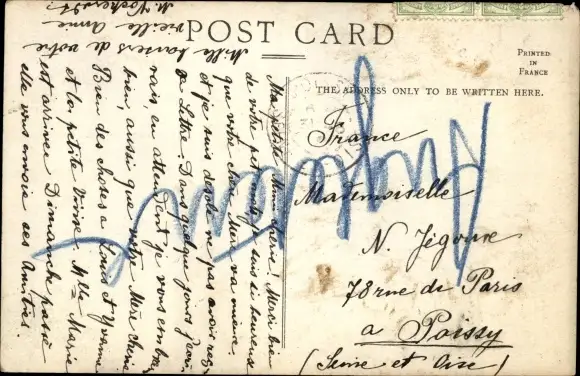 POST CARD
PRINTED
IN
FRANCE
THE ADDRESS ONLY TO BE WRITTEN HERE.
France
Mademoiselle
N. Jégoue
78 rue de Paris
a Poissy
(Seine et Oise)
Ma petite Mimi chérie! Merci bien
de votre petit je suis si heureuse
que votre chère Mère va mieux
et je suis désolé ne pas avoir reçu
sa Lettre. Dans quelque jours j'écri-
rais en attendant je vous embrasse
bien, aussi que votre Mère cherie
Bien des choses a Louis et Yvonne
et la petite Mlle Marie
est arrivée Dimanche passé
elle vous envoie ses Amitiés.
Mille baisers de votre
vieille Amie